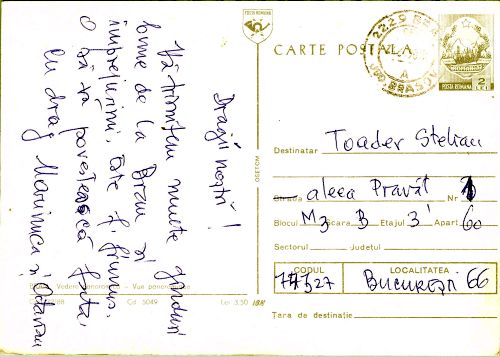 Dragii noștri!
Vă trimitem multe gânduri
bune de la Bran și
împrejurimi. Este f. frumos.
O să vă povestească fata,
cu drag Marinica și Octavian
POSTA ROMANA
CARTE POSTALA
2229 BRAN
JUD. BRASOV
A
POSTA ROMANA 2 LEI
Destinatar Toader Stelian
Strada aleea Pravăț Nr 1
Blocul M3 Scara B Etajul 3 Apart 60
Sectorul Județul
CODUL LOCALITATEA
77527 BUCUREȘTI 66
Țara de destinație
Vedere panoramică – Vue panoramique
Cd 5049 Lei 3,50